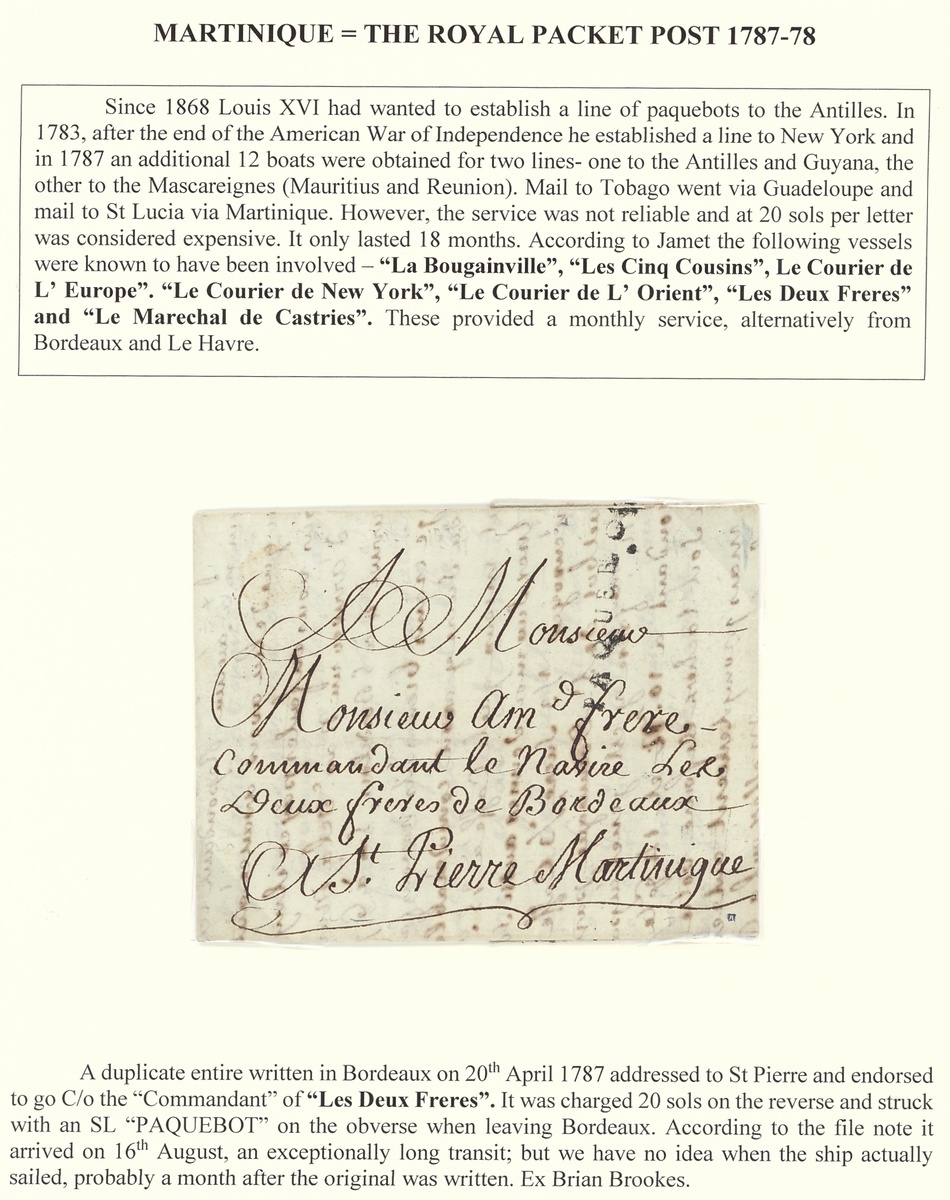 MARTINIQUE = THE ROYAL PACKET POST 1787-78
Since 1868 Louis XVI had wanted to establish a line of paquebots to the Antilles. In
1783, after the end of the American War of Independence he established a line to New York and
in 1787 an additional 12 boats were obtained for two lines- one to the Antilles and Guyana, the
other to the Mascareignes (Mauritius and Reunion). Mail to Tobago went via Guadeloupe and
mail to St Lucia via Martinique. However, the service was not reliable and at 20 sols per letter
was considered expensive. It only lasted 18 months. According to Jamet the following vessels
were known to have been involved – “La Bougainville”, “Les Cinq Cousins”, Le Courier de
L’ Europe”. “Le Courier de New York”, “Le Courier de L’ Orient”, “Les Deux Freres”
and “Le Marechal de Castries”. These provided a monthly service, alternatively from
Bordeaux and Le Havre.
PAQUEBOT
A Monsieur
Monsieur Am d frere
Commandant le Navire Les
Deux freres de Bordeaux
A St. Pierre Martinique
A duplicate entire written in Bordeaux on 20th April 1787 addressed to St Pierre and endorsed
to go C/o the “Commandant” of “Les Deux Freres”. It was charged 20 sols on the reverse and struck
with an SL “PAQUEBOT” on the obverse when leaving Bordeaux. According to the file note it
arrived on 16th August, an exceptionally long transit; but we have no idea when the ship actually
sailed, probably a month after the original was written. Ex Brian Brookes.